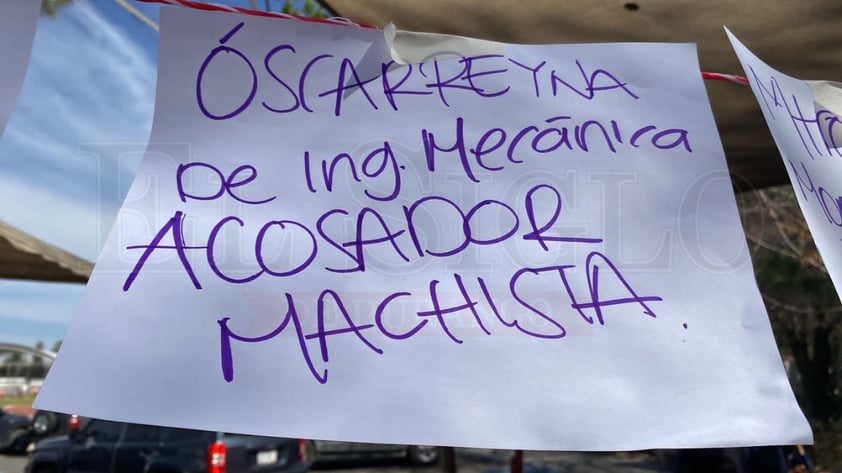 ÓSCAR REYNA
DE Ing. Mecánica
ACOSADOR
MACHISTA.
EL SIGLO
DE DURANGO